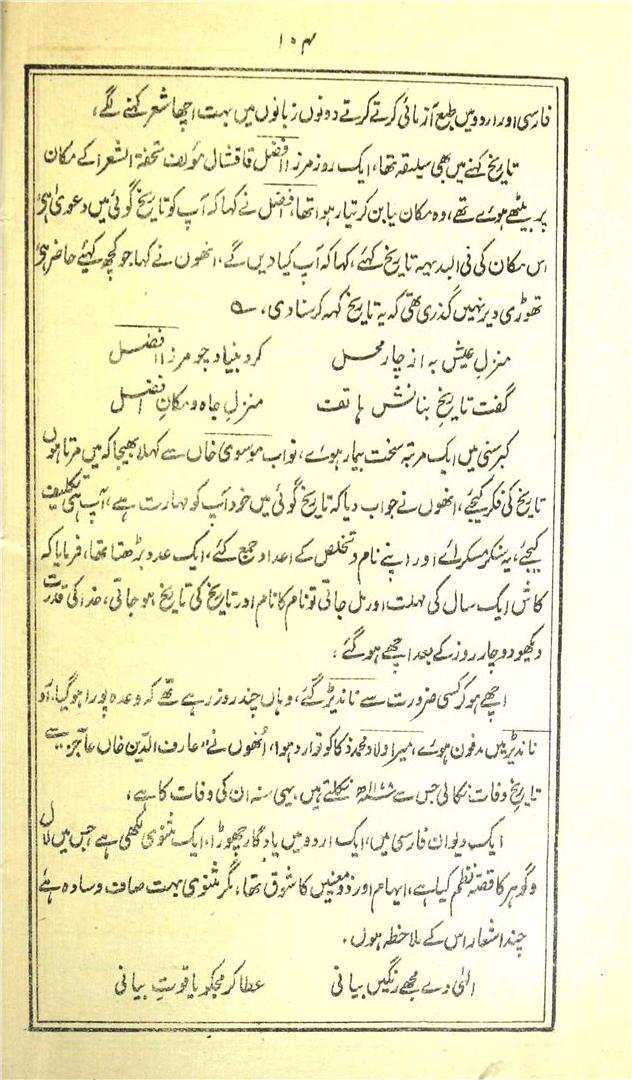 ۱۰۴
فارسی اور اردو میں طبع آزمائی کرتے کرتے دونوں زبانوں میں بہت اچھا شعر کہنے لگے،
تاریخ کہنے میں بھی سلیقہ تھا، ایک روز مرزا افضل قاقشال مؤلف تحفۃ الشعرا کے مکان
پر بیٹھے ہوئے تھے، وہ مکان نیا بن کر تیار ہوا تھا، افضل نے کہا کہ آپ کو تاریخ گوئی میں دعویٰ ہے،
اس مکان کی فی البدیہہ تاریخ کہئے، کہا کہ آپ کیا دیں گے، انھوں نے کہا جو کچھ کہئے حاضر ہے،
تھوڑی دیر نہیں گذری تھی کہ یہ تاریخ کہہ کر سنا دی، ؎
منزلِ عیش بہ از چار محل کرد بنیاد چو مرزا افضل
گفت تاریخِ بنانش ہاتف منزلِ جاہ و مکانِ افضل
کبر سنی میں ایک مرتبہ سخت بیمار ہوئے، نواب موسوی خاں سے کہلا بھیجا کہ میں مرتا ہوں
تاریخ کی فکر کیجئے، انھوں نے جواب دیا کہ تاریخ گوئی میں خود آپ کو مہارت ہے، آپ ہی تکلیف
کیجئے، یہ سنکر مسکرائے اور اپنے نام و تخلص کے اعداد جمع کئے، ایک عدد بڑھتا تھا، فرمایا کہ
کاش ایک سال کی مہلت اور مل جاتی تو نام کا نام اور تاریخ کی تاریخ ہو جاتی، خدا کی قدرت
دیکھو دو چار روز کے بعد اچھے ہو گئے،
اچھے ہو کر کسی ضرورت سے ناندیڑ گئے، وہاں چند روز رہے تھے کہ وعدہ پورا ہو گیا، اور
ناندیڑ میں مدفون ہوئے، میر اولاد محمد ذکا کو توارد ہوا، اُنھوں نے "عارف الدّین خاں عاجز" سے
تاریخِ وفات نکالی جس سے نکلتے ہیں، یہی سنہ ان کی وفات کا ہے،
ایک دیوان فارسی میں، ایک اردو میں یادگار چھوڑا، ایک مثنوی لکھی ہے جس میں لال
و گوہر کا قصّہ نظم کیا ہے، ایہام اور ذو معنیین کا شوق تھا، مگر مثنوی بہت صاف و سادہ ہے،
چند اشعار اس کے ملاحظہ ہوں،
الٰہی دے مجھے رنگیں بیانی عطا کر مجکو یاقوتِ بیانی